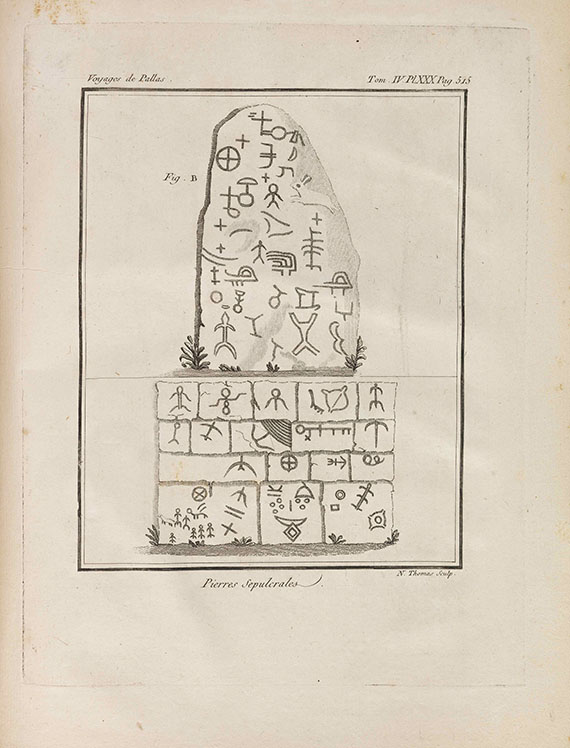 Voyages de Pallas.
Tom. IV. Pl. XXX. Pag. 515
Fig. B
N. Thomas Sculp.
Pierres Sepulcrales.